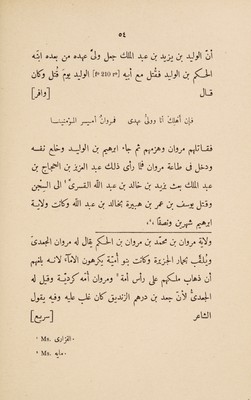 ٥٤
أنّ الوليد بن يزيد بن عبد الملك جعل ولىّ عهده من بعده ابنه
الحكم بن الوليد فقُتل مع أبيه [fº 210 rº] الوليد يوم قُتل وكان
قال [وافر]
فإن أهلك أنا وولى عهدى فمروانٌ أمير المؤمنينا
فقاتلهم مروان وهزمهم ثم جاء ابرهيم بن الوليد وخلع نفسه
ودخل فى طاعة مروان فلمّا رأى ذلك عبد العزيز بن الحجاج بن
عبد الملك بعث يزيد بن خالد بن عبد الله القسرى¹ الى السجن
وقتل يوسف بن عمر بن هبيرة بخالد بن عبد الله وكانت ولاية
ابرهيم شهرين ونصفًا ،،
ولاية مروان بن محمّد بن مروان بن الحكم يقال له مروان الجعدىّ
ويُلقّب بحمار الجزيرة وكانت بنو أميّة يكرهون الاماء لانه بلغهم
أن ذهاب ملكهم على رأس أمة² ومروان أمّه كرديّة وقيل له
الجعدىّ لأنّ جعد بن درهم الزنديق كان غلب عليه وفيه يقول
الشاعر [سريع]
¹ Ms. الفزارى.
² Ms. مايه.